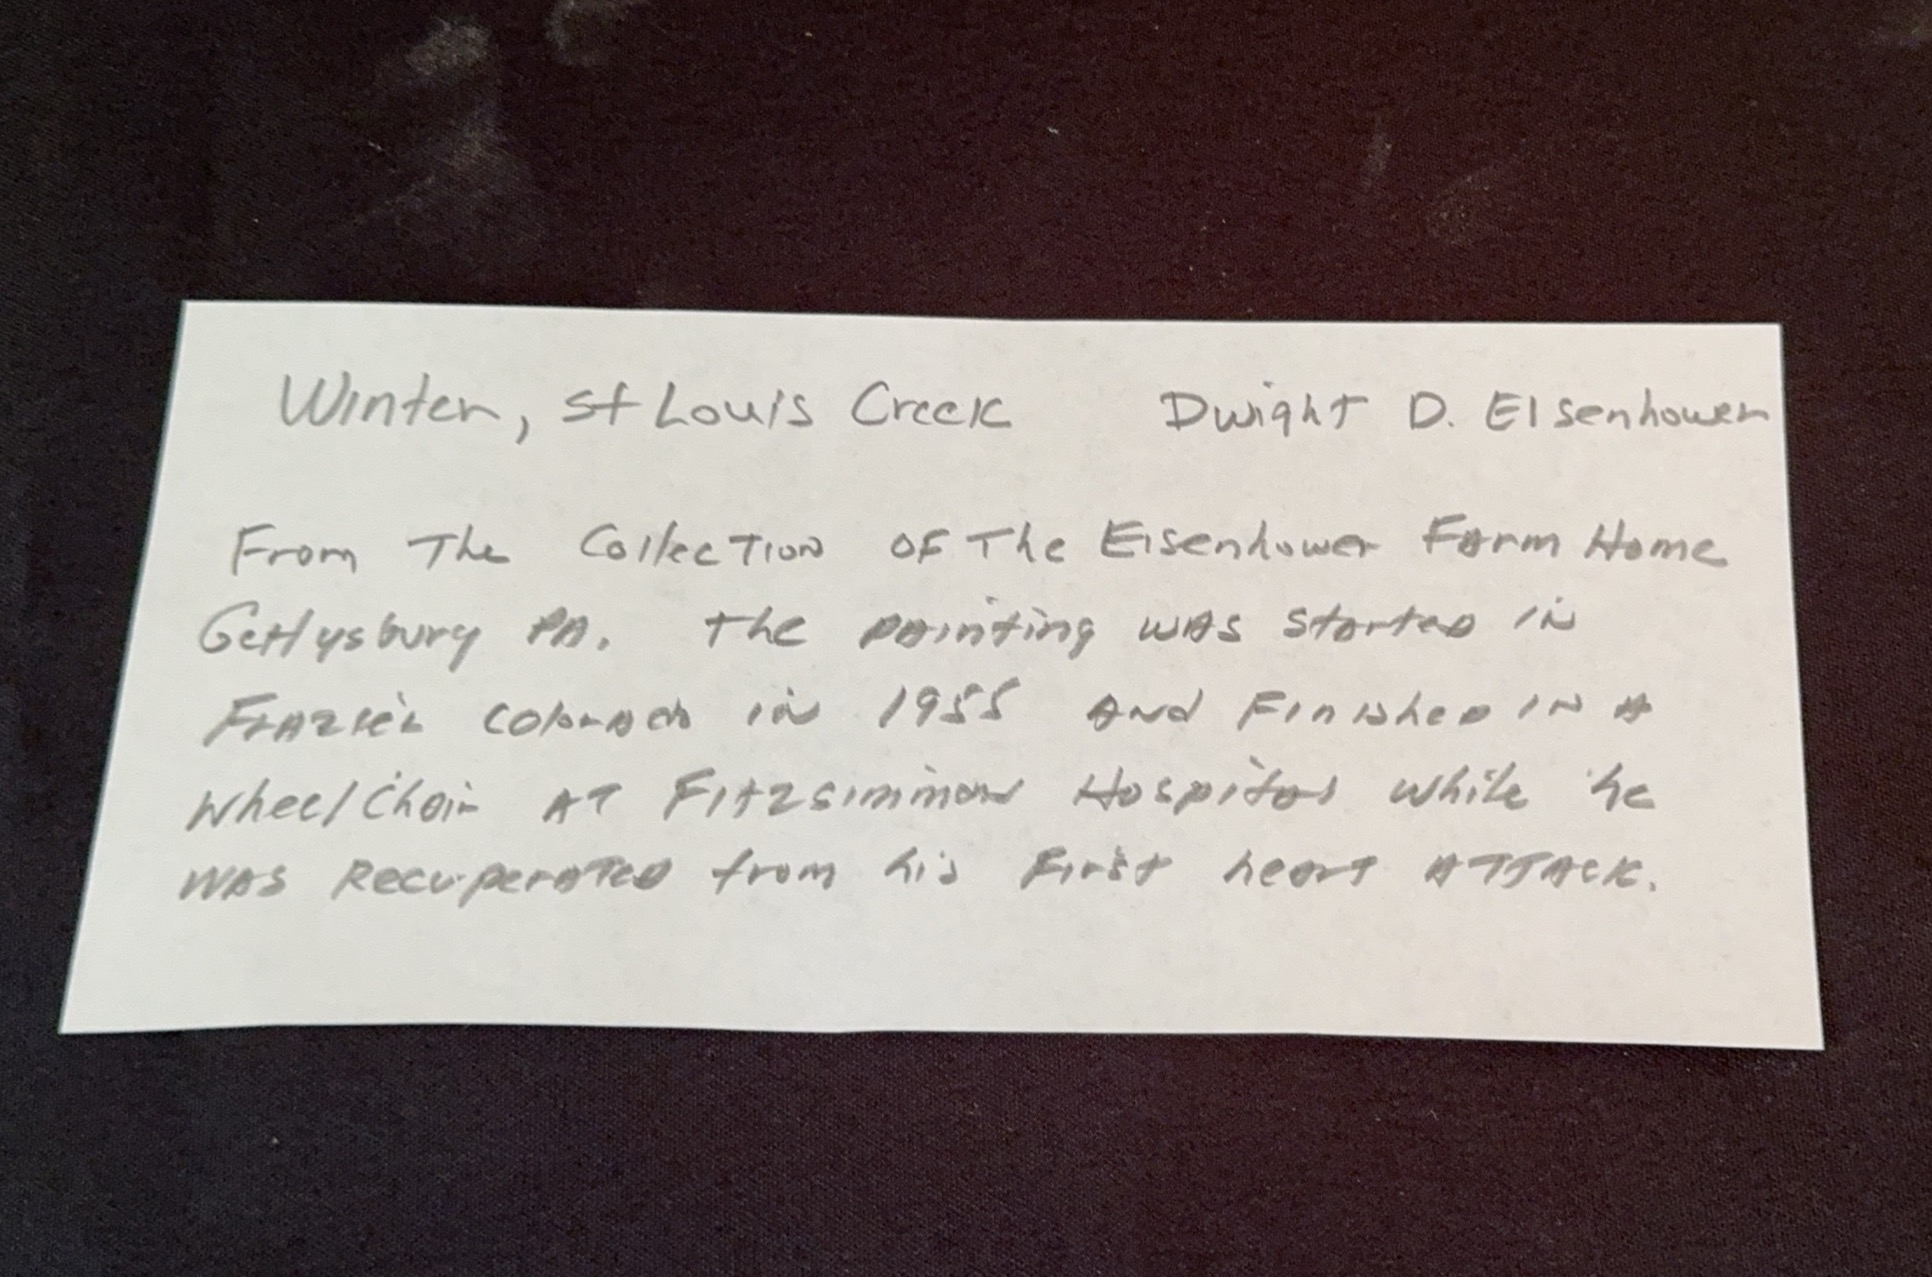 Winter, St Louis Creek Dwight D. EIsenhower
From The Collection of The Eisenhower Farm Home
Gettysburg PA. The painting was started in
Frazier Colorado in 1955 and Finished in a
wheel chair AT Fitzsimmon Hospital while he
was Recuperated from his First heart ATTACK.